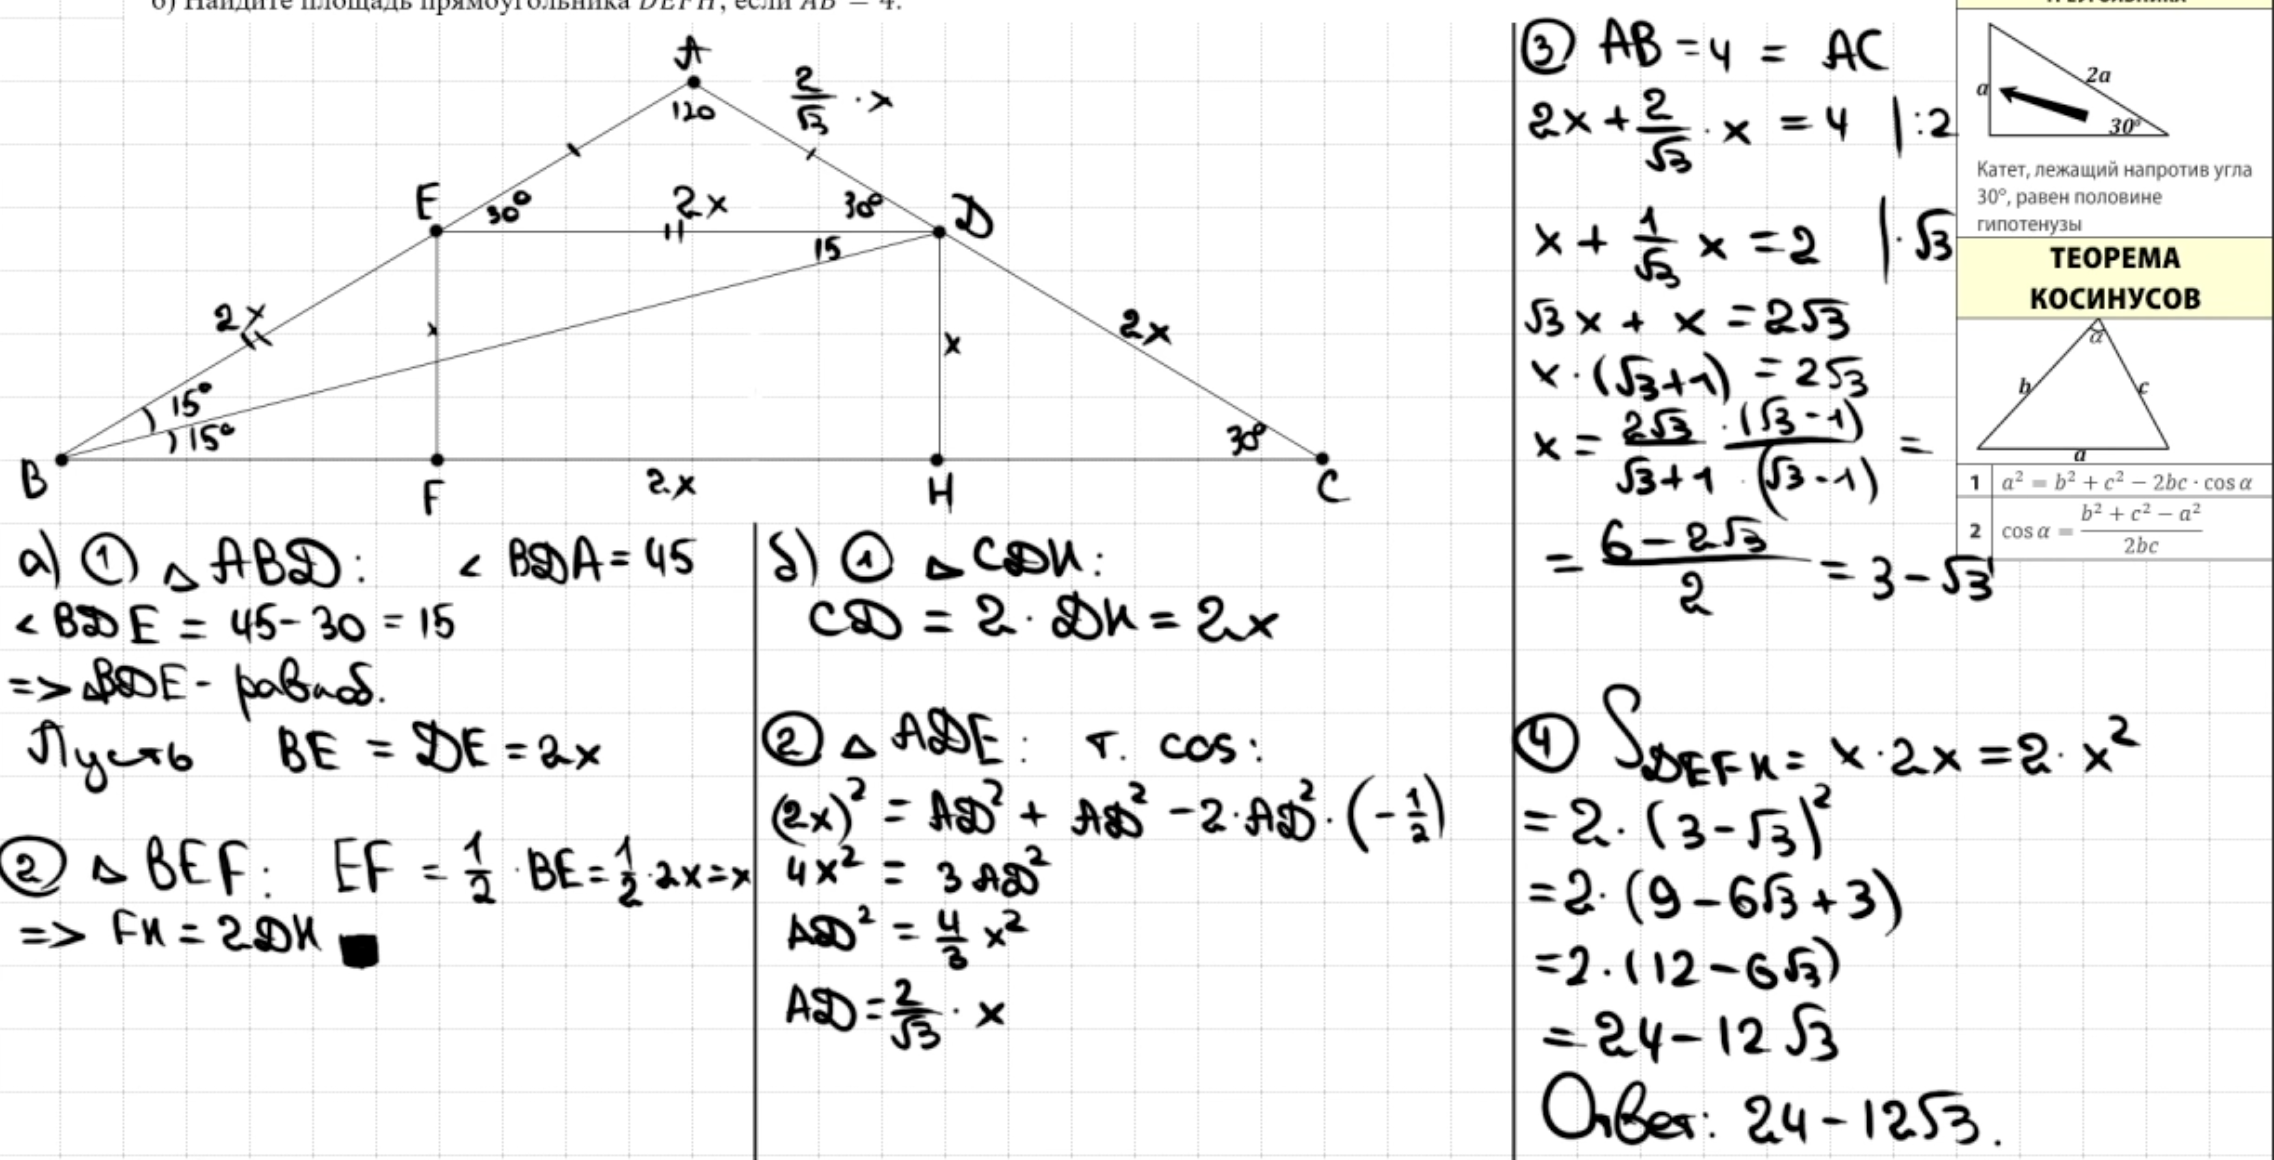 б) Найдите площадь прямоугольника DEFH, если AB = 4.
A
120
2/√3 · x
E
30°
2x
30°
D
15
2x
x
x
2x
15°
15°
30°
B
F
2x
H
C
а) ① △ABD: ∠BDA = 45
∠BDE = 45 - 30 = 15
=> △BDE - равноб.
Пусть BE = DE = 2x
② △BEF: EF = 1/2 · BE = 1/2 · 2x = x
=> FH = 2DH ■
б) ① △CDH:
CD = 2 · DH = 2x
② △ADE: т. cos:
(2x)² = AD² + AD² - 2 · AD² · (-1/2)
4x² = 3AD²
AD² = 4/3 x²
AD = 2/√3 · x
③ AB = 4 = AC
2x + 2/√3 · x = 4 | :2
x + 1/√3 x = 2 | ·√3
√3x + x = 2√3
x · (√3+1) = 2√3
x = 2√3/(√3+1) · (√3-1)/(√3-1) =
= (6 - 2√3)/2 = 3 - √3
④ S DEFH = x · 2x = 2 · x²
= 2 · (3 - √3)²
= 2 · (9 - 6√3 + 3)
= 2 · (12 - 6√3)
= 24 - 12√3
Ответ: 24 - 12√3.
a
2a
30°
Катет, лежащий напротив угла
30°, равен половине
гипотенузы
ТЕОРЕМА
КОСИНУСОВ
α
b
c
a
1 a² = b² + c² − 2bc · cos α
2 cos α = (b² + c² − a²)/2bc